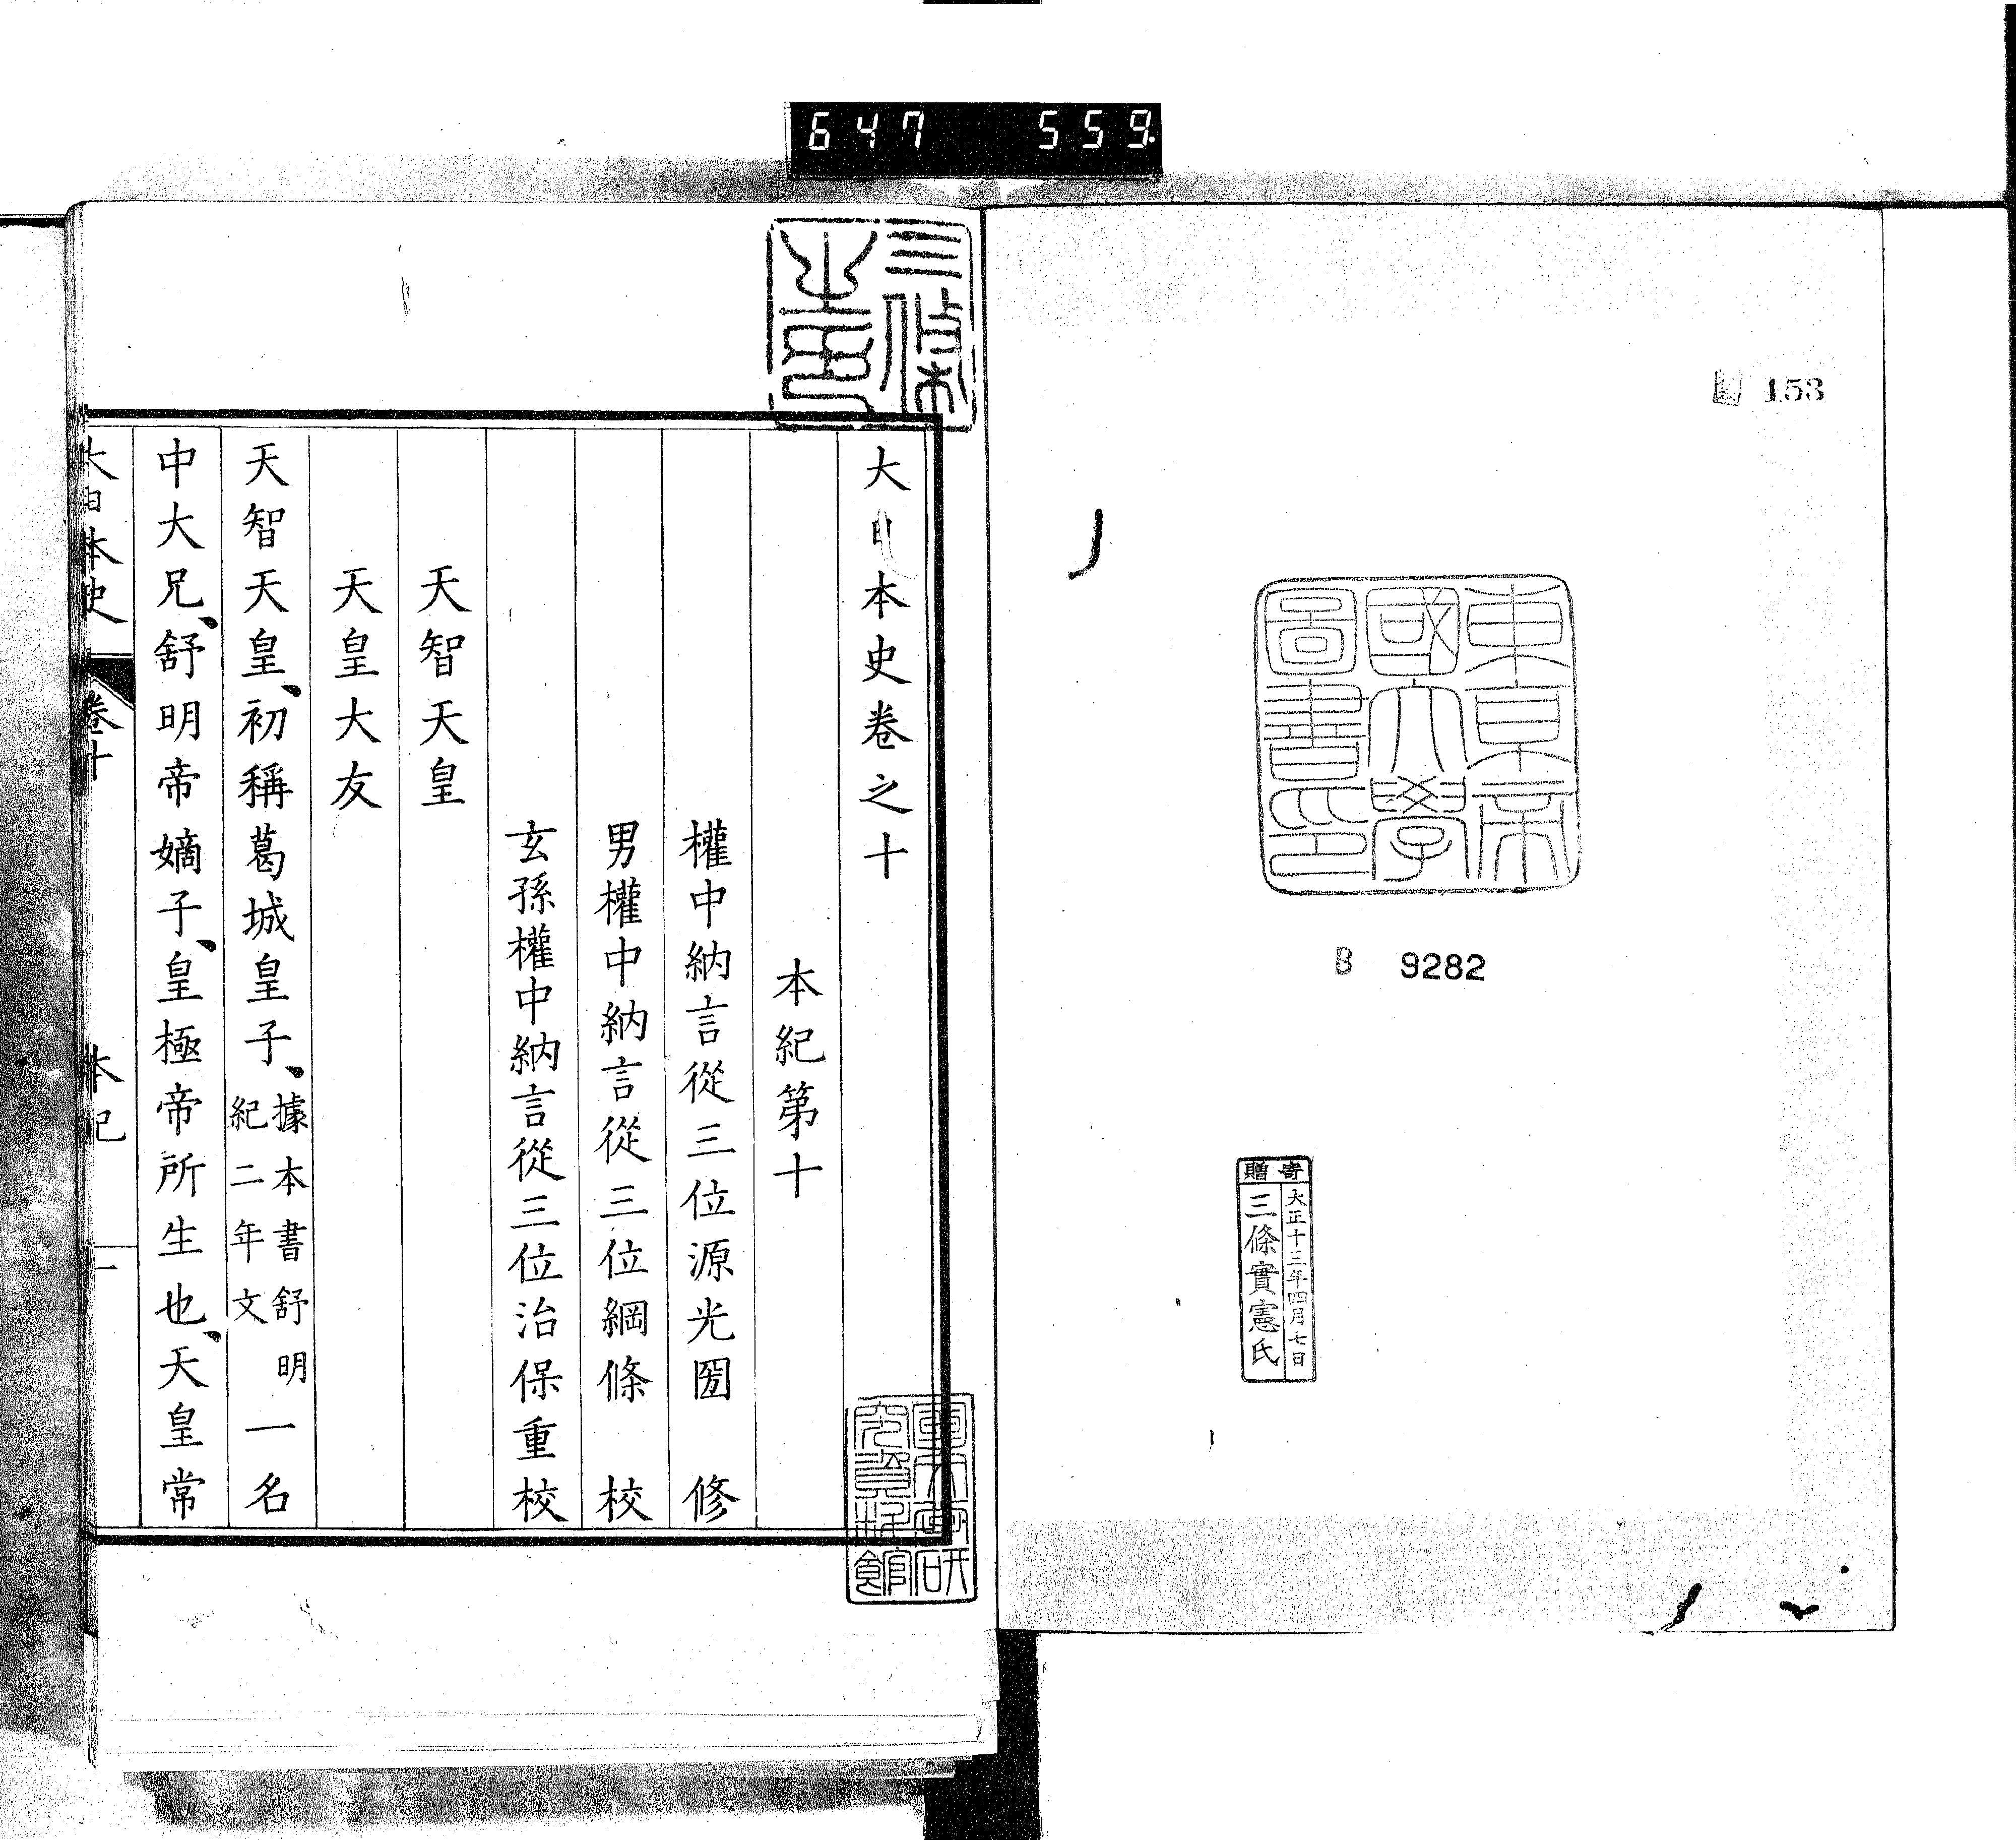 647 559
153
東京帝
國大學
圖書印
B 9282
寄贈
大正十三年四月七日
三條實憲氏
三條
之印
大日本史卷之十
本紀第十
權中納言從三位源光圀 修
男權中納言從三位綱條 校
玄孫權中納言從三位治保重校
天智天皇
天皇大友
天智天皇、初稱葛城皇子、據本書舒明紀二年文一名
中大兄、舒明帝嫡子、皇極帝所生也、天皇常
大日本史 卷十 本紀 一